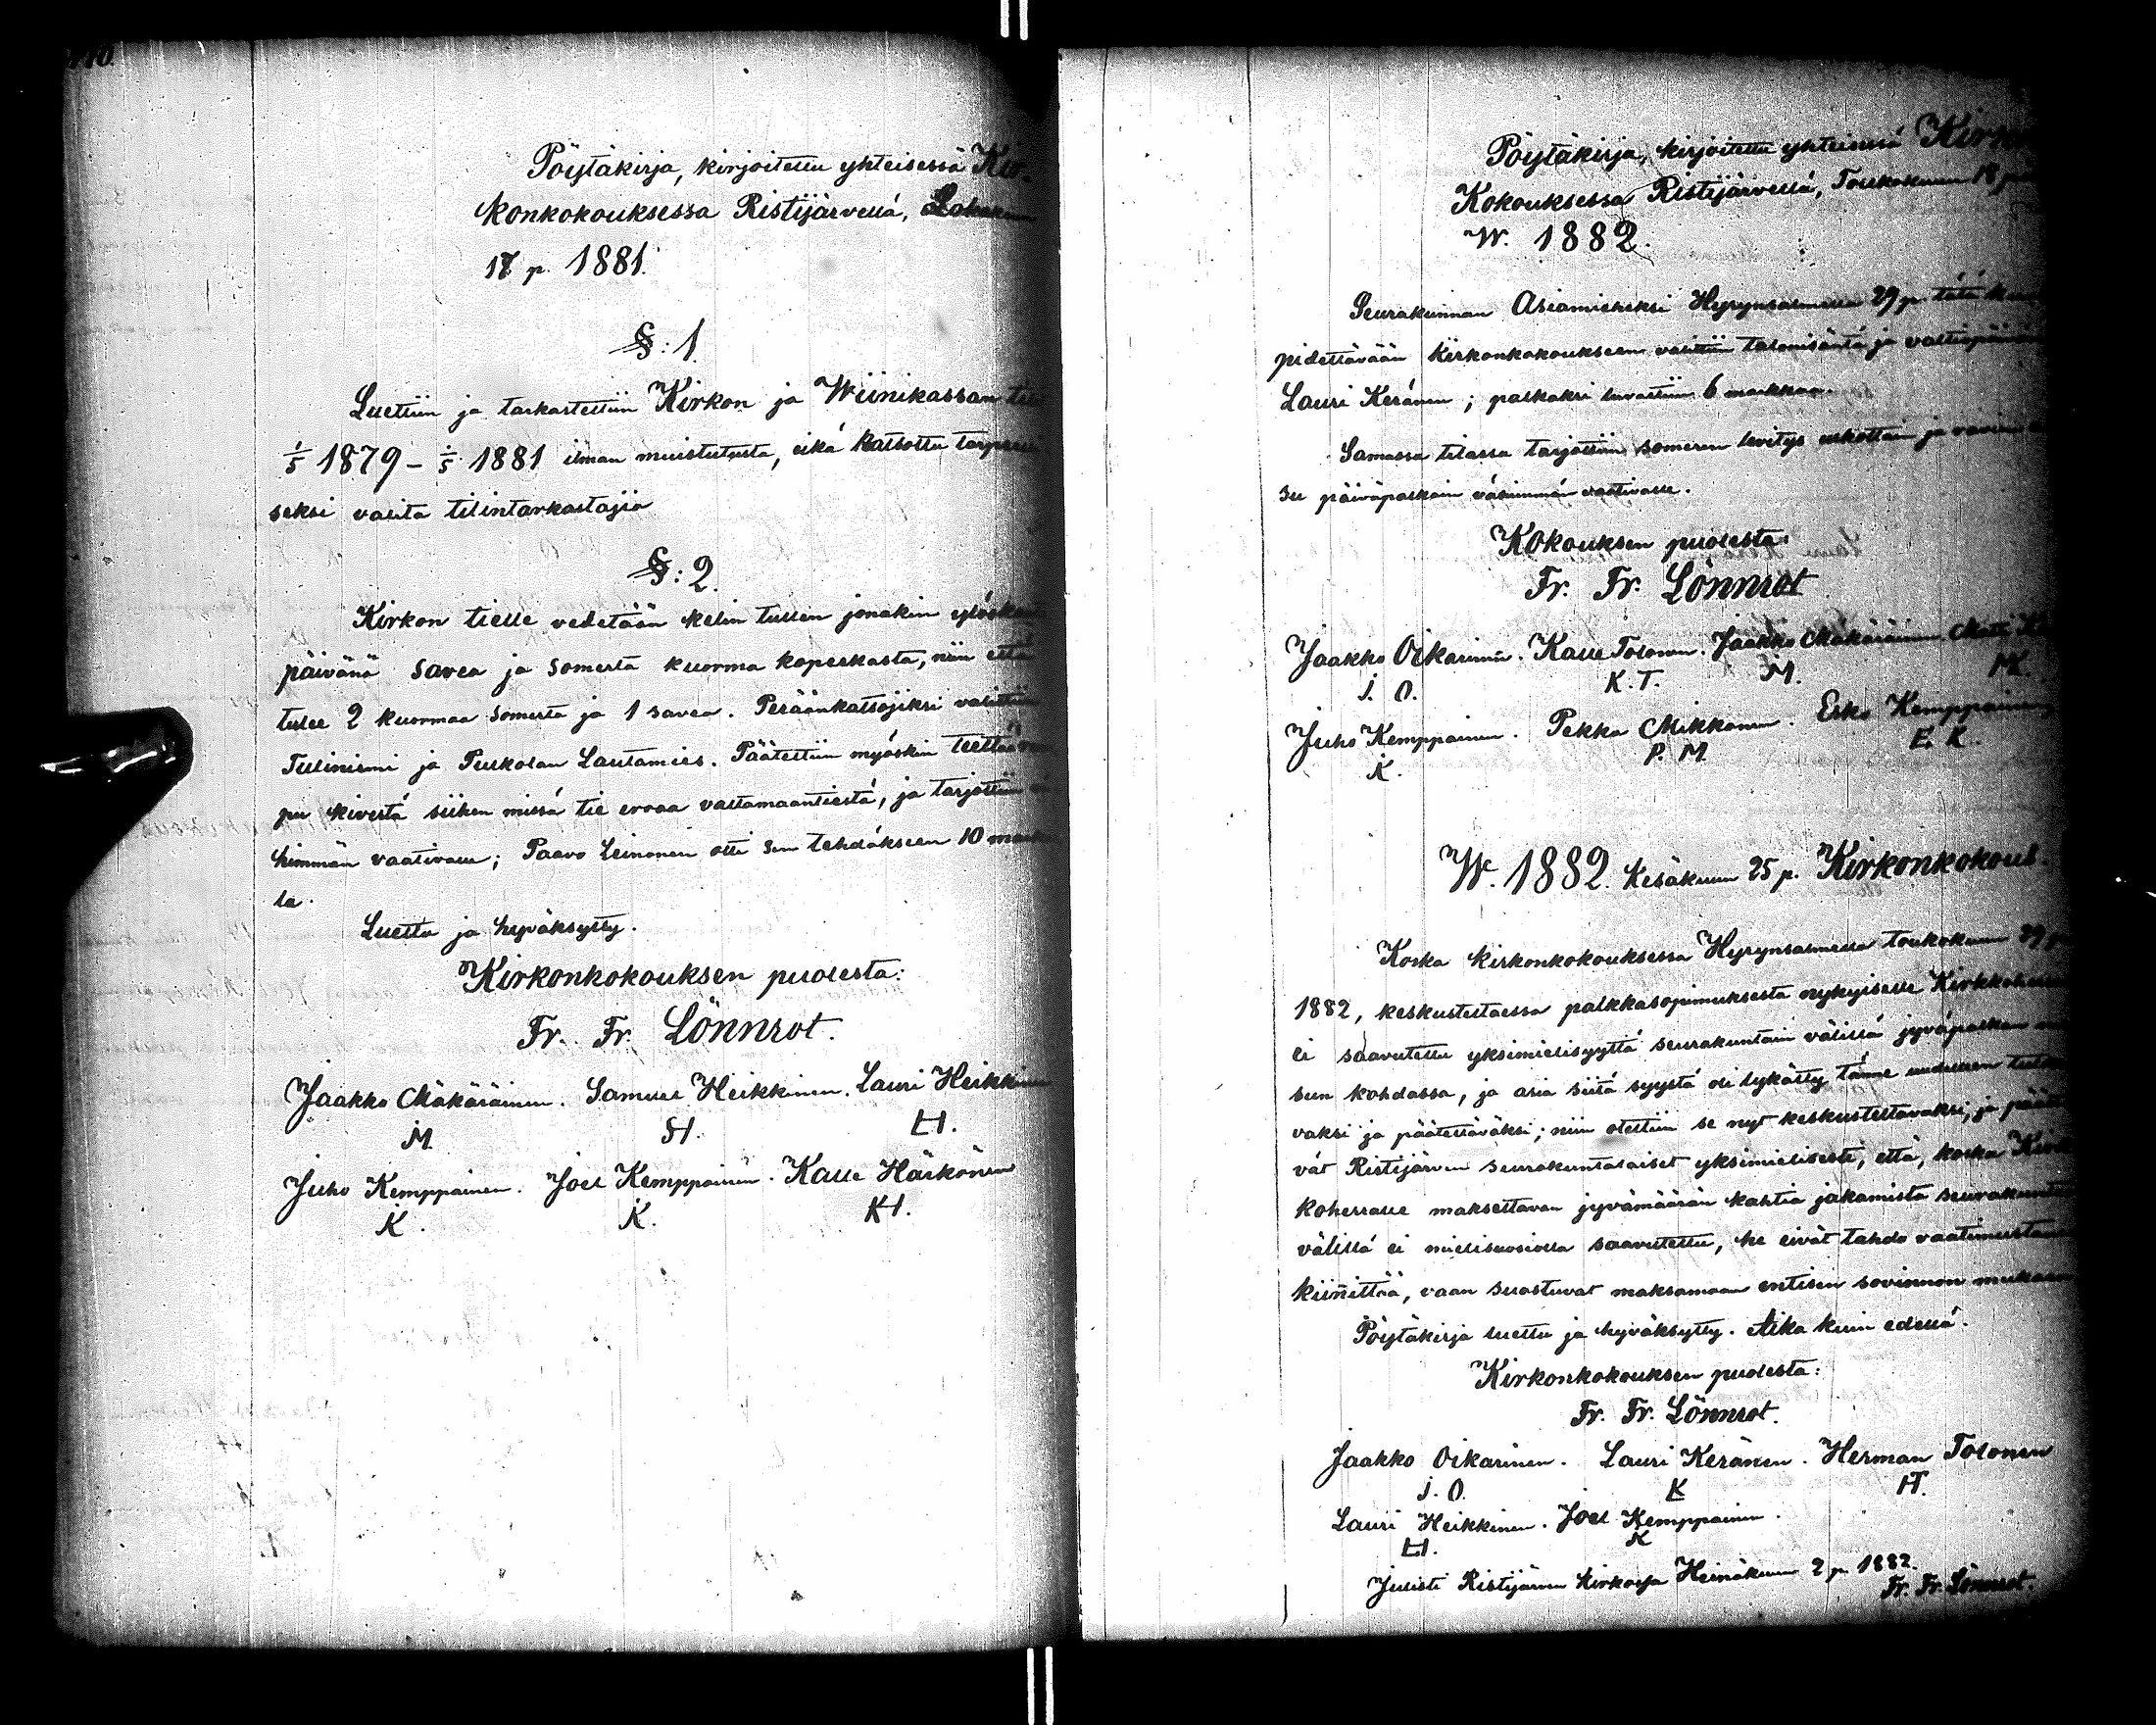 110.
Pöytäkirja, kirjoitettu yhteisessä Kir-
konkokouksessa Ristijärvellä, Lokakuun
17 p. 1881.
§: 1.
Luettiin ja tarkastettiin Kirkon ja Wiinikassan tilit
1/5 1879 - 1/5 1881 ilman muistutusta, eikä katsottu tarpeel
seksi valita tilintarkastajia
§: 2.
Kirkon tielle vedetään kelin tullen jonakin
päivänä savea ja somerta kuorma koperkasta, niin että
tulee 2 kuormaa somerta ja 1 savea. Peräänkatsojiksi valittiin
Tuliniemi ja Pulkolan Lautamies. Päätettiin myöskin teettää
pu kivestä siihen missä tie eroaa valtamaantiestä, ja tarjottiin
himmän vaativalle; Paavo Leinonen otti sen tehdäkseen 10 markal
la.
Luettu ja hyväksytty.
Kirkonkokouksen puolesta:
Fr. Fr. Lönnrot.
Jaakko Mäkäräinen. Samuel Heikkinen. Lauri Heikkinen
M SH. LH.
Juho Kemppainen. Joel Kemppainen. Kalle Härkönen
K. K. KH.
Pöytäkirja, kirjoitettu yhteisessä Kirkon
Kokouksessa Ristijärvellä, Toukokuun 18 p.
W. 1882.
Seurakunnan Asiamieheksi Hyrynsalmella 29 p. tätä kuuta
pidettävään Kirkonkokoukseen valittiin talonisäntä ja valtiopäivämies
Lauri Keränen; palkaksi luvattiin 6 markkaa.
Samassa tilassa tarjottiin someren levitys
su päiväpalkoin vähimmän vaativalle.
Kokouksen puolesta:
Fr. Fr. Lönnrot
Jaakko Oikarinen. Kalle Tolonen. Jaakko Mäkäräinen. Matti
J. O. K. T. M. MK.
Juho Kemppainen. Pekka Mikkonen. Esko Kemppainen
K. P. M E. K.
W. 1882. Kesäkuun 25 p. Kirkonkokous.
Koska kirkonkokouksessa Hyrynsalmella toukokuun 29 p.
1882, keskusteltaessa palkkasopimuksesta nykyiselle Kirkkoherralle
ei saavutettu yksimielisyyttä seurakuntain välillä jyväpalkan
sen kohdassa, ja asia siitä syystä oli lykätty tänne uudelleen
vaksi ja päätettäväksi; niin otettiin se nyt keskusteltavaksi, ja päätti
vät Ristijärven seurakuntalaiset yksimielisesti, että, koska Kirk
koherralle maksettavan jyvämäärän kahtia jakamista seurakuntain
välillä ei mielisuosiolla saavutettu, he eivät tahdo vaatimustansa
kiinittää, vaan suostuvat maksamaan entisen sovinnon mukaan
Pöytäkirja luettu ja hyväksytty. Aika kuin edellä.
Kirkonkokouksen puolesta:
Fr. Fr. Lönnrot.
Jaakko Oikarinen. Lauri Keränen. Herman Tolonen
J. O. K HT.
Lauri Heikkinen. Joel Kemppainen.
LH. K
Julisti Ristijärven kirkossa Heinäkuun 2 p. 1882.
Fr. Fr. Lönnrot.